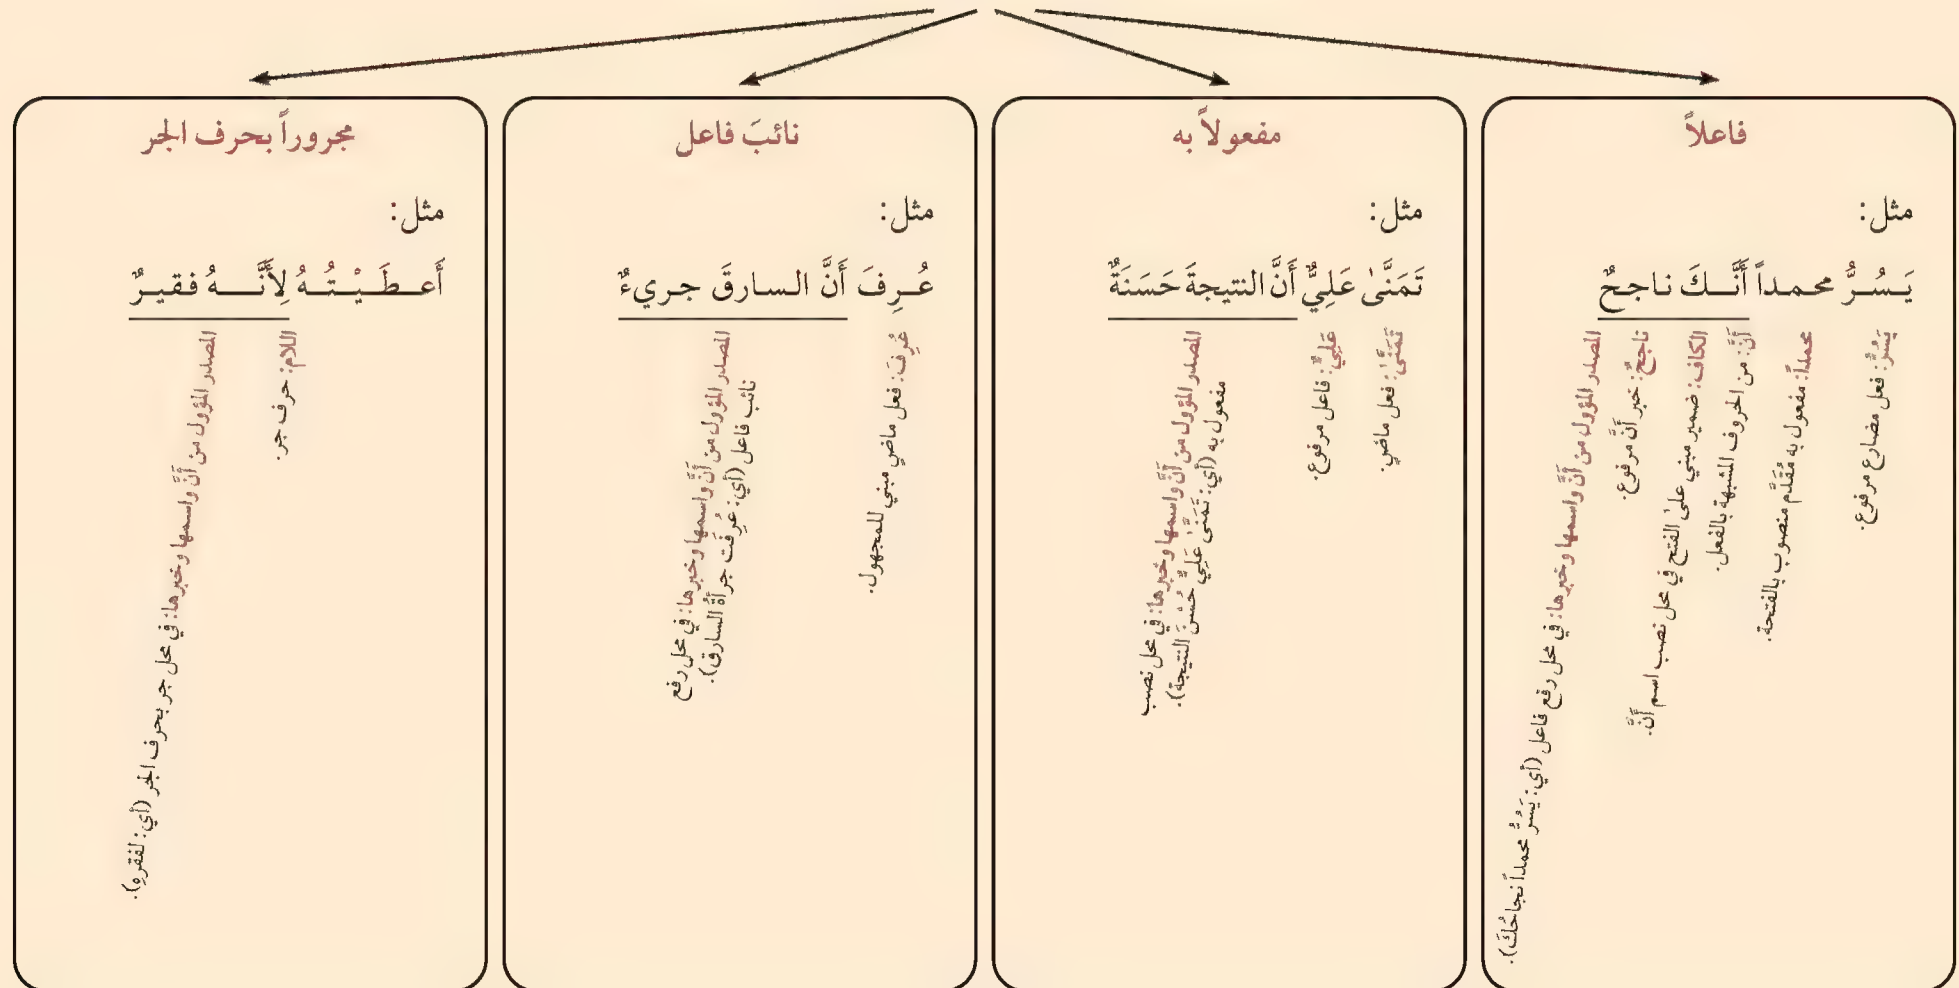 فاعلاً
مثل:
يَسُرُّ محمداً أَنَّكَ ناجحٌ
يَسُرُّ: فعل مضارع مرفوع.
محمداً: مفعول به مُقَدَّم منصوب بالفتحة.
أَنَّ: من الحروف المشبهة بالفعل.
الكاف: ضمير مبني علىٰ الفتح في محل نصب اسم أَنَّ.
ناجحٌ: خبر أَنَّ مرفوع.
المصدر المؤول من أَنَّ واسمها وخبرها: في محل رفع فاعل (أي: يَسُرُّ محمداً نجاحُكَ).
مفعولاً به
مثل:
تَمَنَّىٰ عَلِيٌّ أَنَّ النتيجةَ حَسَنَةٌ
تَمَنَّىٰ: فعل ماضٍ.
عَلِيٌّ: فاعل مرفوع.
المصدر المؤول من أَنَّ واسمها وخبرها: في محل نصب
مفعول به (أي: تَمَنَّىٰ عَلِيٌّ حُسْنَ النتيجة).
نائبَ فاعل
مثل:
عُرِفَ أَنَّ السارقَ جريءٌ
عُرِفَ: فعل ماضٍ مبني للمجهول.
المصدر المؤول من أَنَّ واسمها وخبرها: في محل رفع
نائب فاعل (أي: عُرِفَت جرأةُ السارق).
مجروراً بحرف الجر
مثل:
أَعطَيْتُهُ لِأَنَّهُ فقيرٌ
اللام: حرف جر.
المصدر المؤول من أَنَّ واسمها وخبرها: في محل جر بحرف الجر (أي: لفقرِهِ).